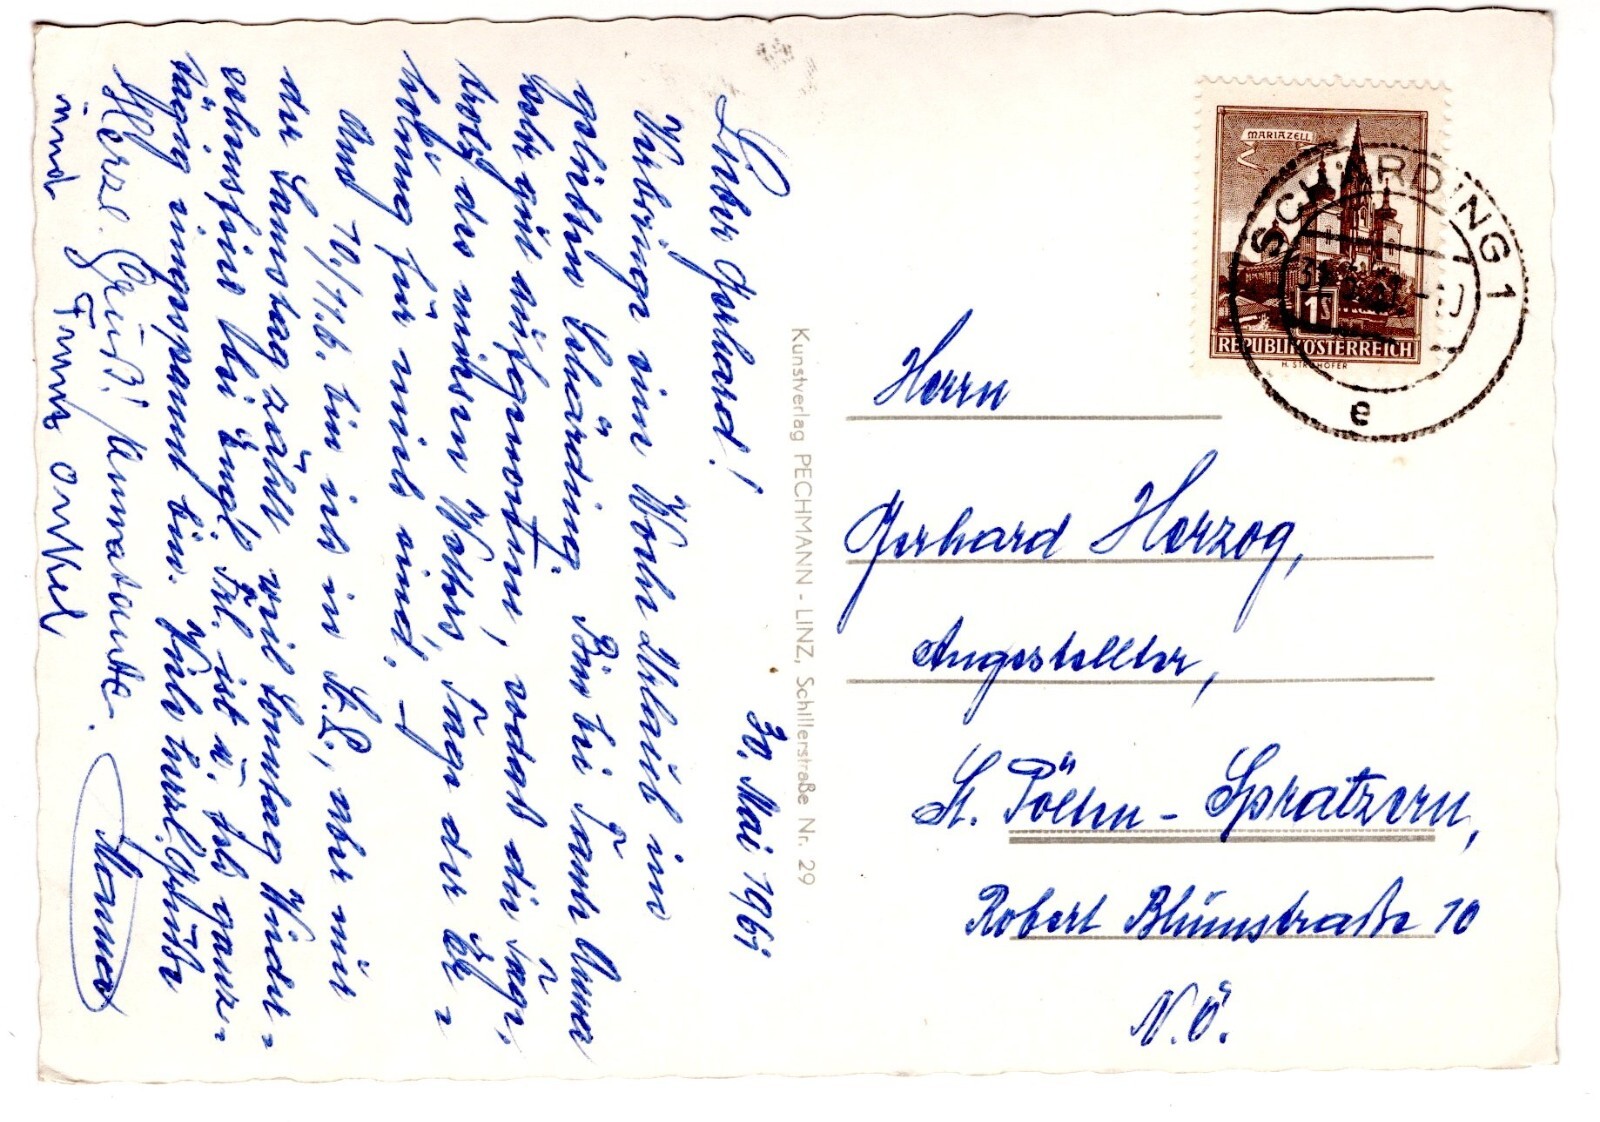 30. Mai 1961
Lieber Gerhard!
Verbringe eine Woche Urlaub im
geliebten Schärding. Bin bei Tante Anna
sehr gut aufgenommen, sodaß die Tage
trotz des miesen Wetters Tage der Er-
holung für mich sind. –
Am 10./11.6. bin ich in St. P., aber mit
der Samstag zählt weil Sonntag
bei Engl. Frl. ist u. ich ganz-
tägig eingespannt bin. Viele herzl. Grüße
Herzl. Grüße! Annatante.
und Franz Onkel
Kunstverlag PECHMANN - LINZ, Schillerstraße Nr. 29
MARIAZELL
1 S
REPUBLIK ÖSTERREICH
H. STROHOFER
SCHÄRDING 1
e
Herrn
Gerhard Herzog,
Angestellter,
St. Pölten - Spratzern,
Robert Blumstraße 10
N.Ö.